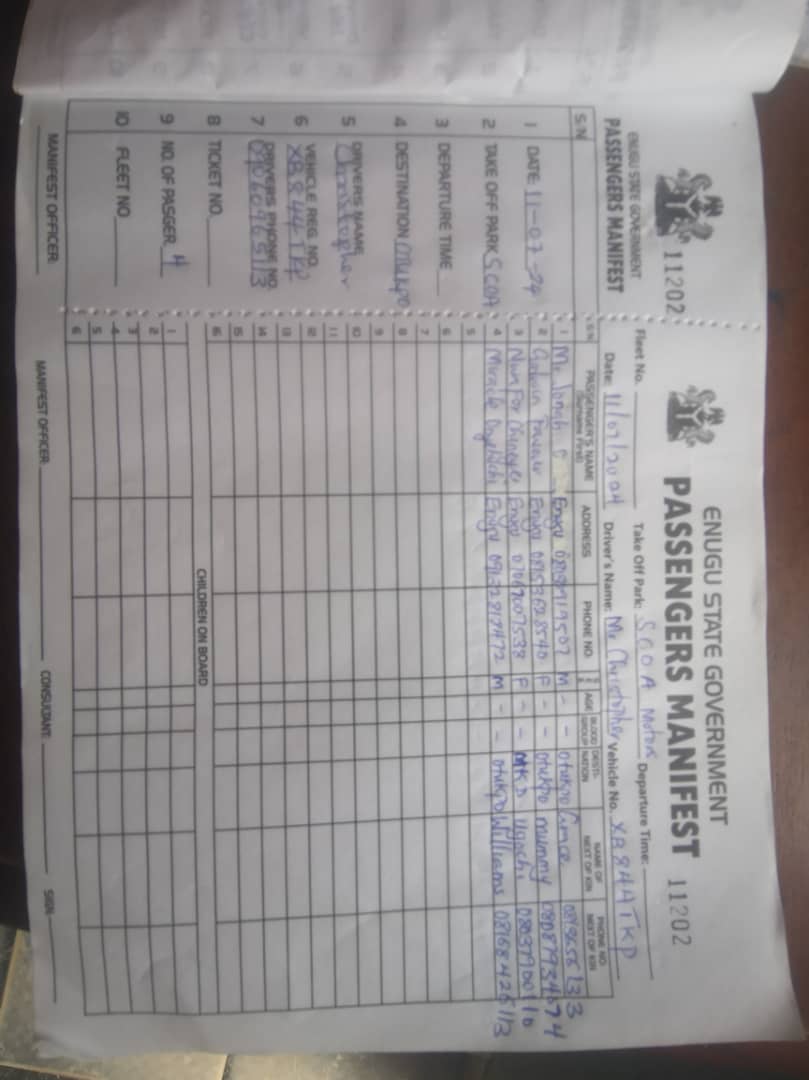 ENUGU STATE GOVERNMENT
PASSENGERS MANIFEST
11202
S/N
1 DATE 11-07-24
2 TAKE OFF PARK SCOA
3 DEPARTURE TIME
4 DESTINATION Otukpo
5 DRIVERS NAME
Christopher
6 VEHICLE REG. NO.
7 DRIVERS PHONE NO
09060965113
8 TICKET NO.
9 NO. OF PASGER. 4
10 FLEET NO.
MANIFEST OFFICER:
ENUGU STATE GOVERNMENT
PASSENGERS MANIFEST 11202
Fleet No. Take Off Park: SCOA Motors Departure Time:
Date: 11/07/2024 Driver's Name: Mr Christopher Vehicle No. XB84ATKP
S/N PASSENGER'S NAME (Surname First) ADDRESS PHONE NO SEX AGE BLOOD GROUP DESTINATION NAME OF NEXT OF KIN PHONE NO NEXT OF KIN
1 Mr Jonah C Enugu M - - Otukpo Grace
2 Enugu 08153628540 F - - Otukpo mummy 08087934674
3 Enugu 07067007538 F - - MKD Ugochi 08037700110
4 Miracle Enugu M - - Otukpo Williams 08168426113
5
6
7
8
9
10
11
12
13
14
15
16
CHILDREN ON BOARD
1
2
3
4
5
6
MANIFEST OFFICER: CONSULTANT: SIGN: